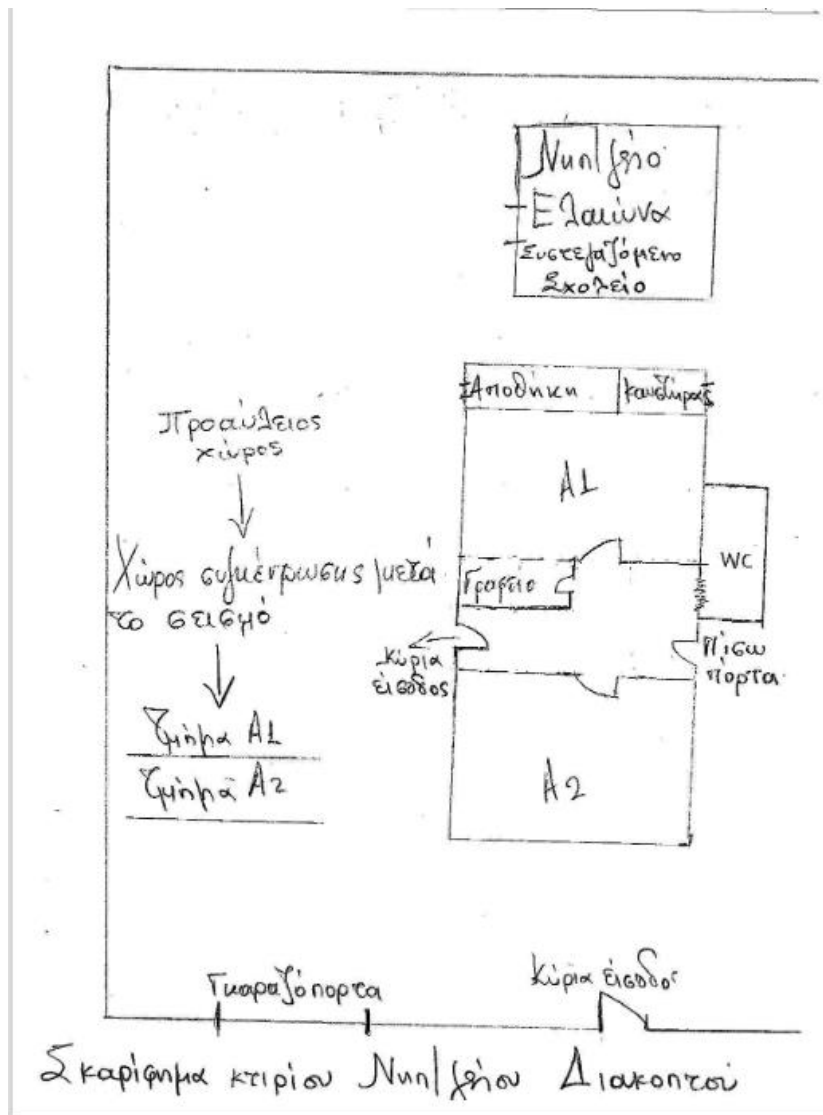 Νηπ/γείο
Ελαιώνα
Συστεγαζόμενο
Σχολείο
Αποθήκη
Καυστήρας
Προαύλειος
χώρος
Α1
WC
Χώρος συγκέντρωσης μετά
το σεισμό
Γραφείο
Κύρια
είσοδος
Πίσω
πόρτα
Τμήμα Α1
Τμήμα Α2
Α2
Γκαραζόπορτα
Κύρια είσοδος
Σκαρίφημα κτιρίου Νηπ/γείου Διακοπτού